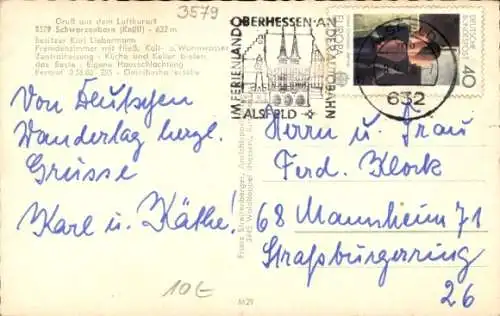 3579
Gruß aus dem Luftkurort
3579 Schwarzenborn (Knüll) - 632 m
Besitzer Karl Liebermann
Fremdenzimmer mit fließ. Kalt- u. Warmwasser
Zentralheizung - Küche und Keller bieten
das Beste - Eigene Hausschlachtung
Von Deutschen
Wandertag herzl.
Grüsse
Karl u. Käthe!
10€
M29
IM FERIENLAND OBERHESSEN AN DER AUTOBAHN
ALSFELD
EUROPA
DEUTSCHE BUNDESPOST
40
632
Herrn u. Frau
Ferd. Klock
68 Mannheim 71
Straßburgerring
26